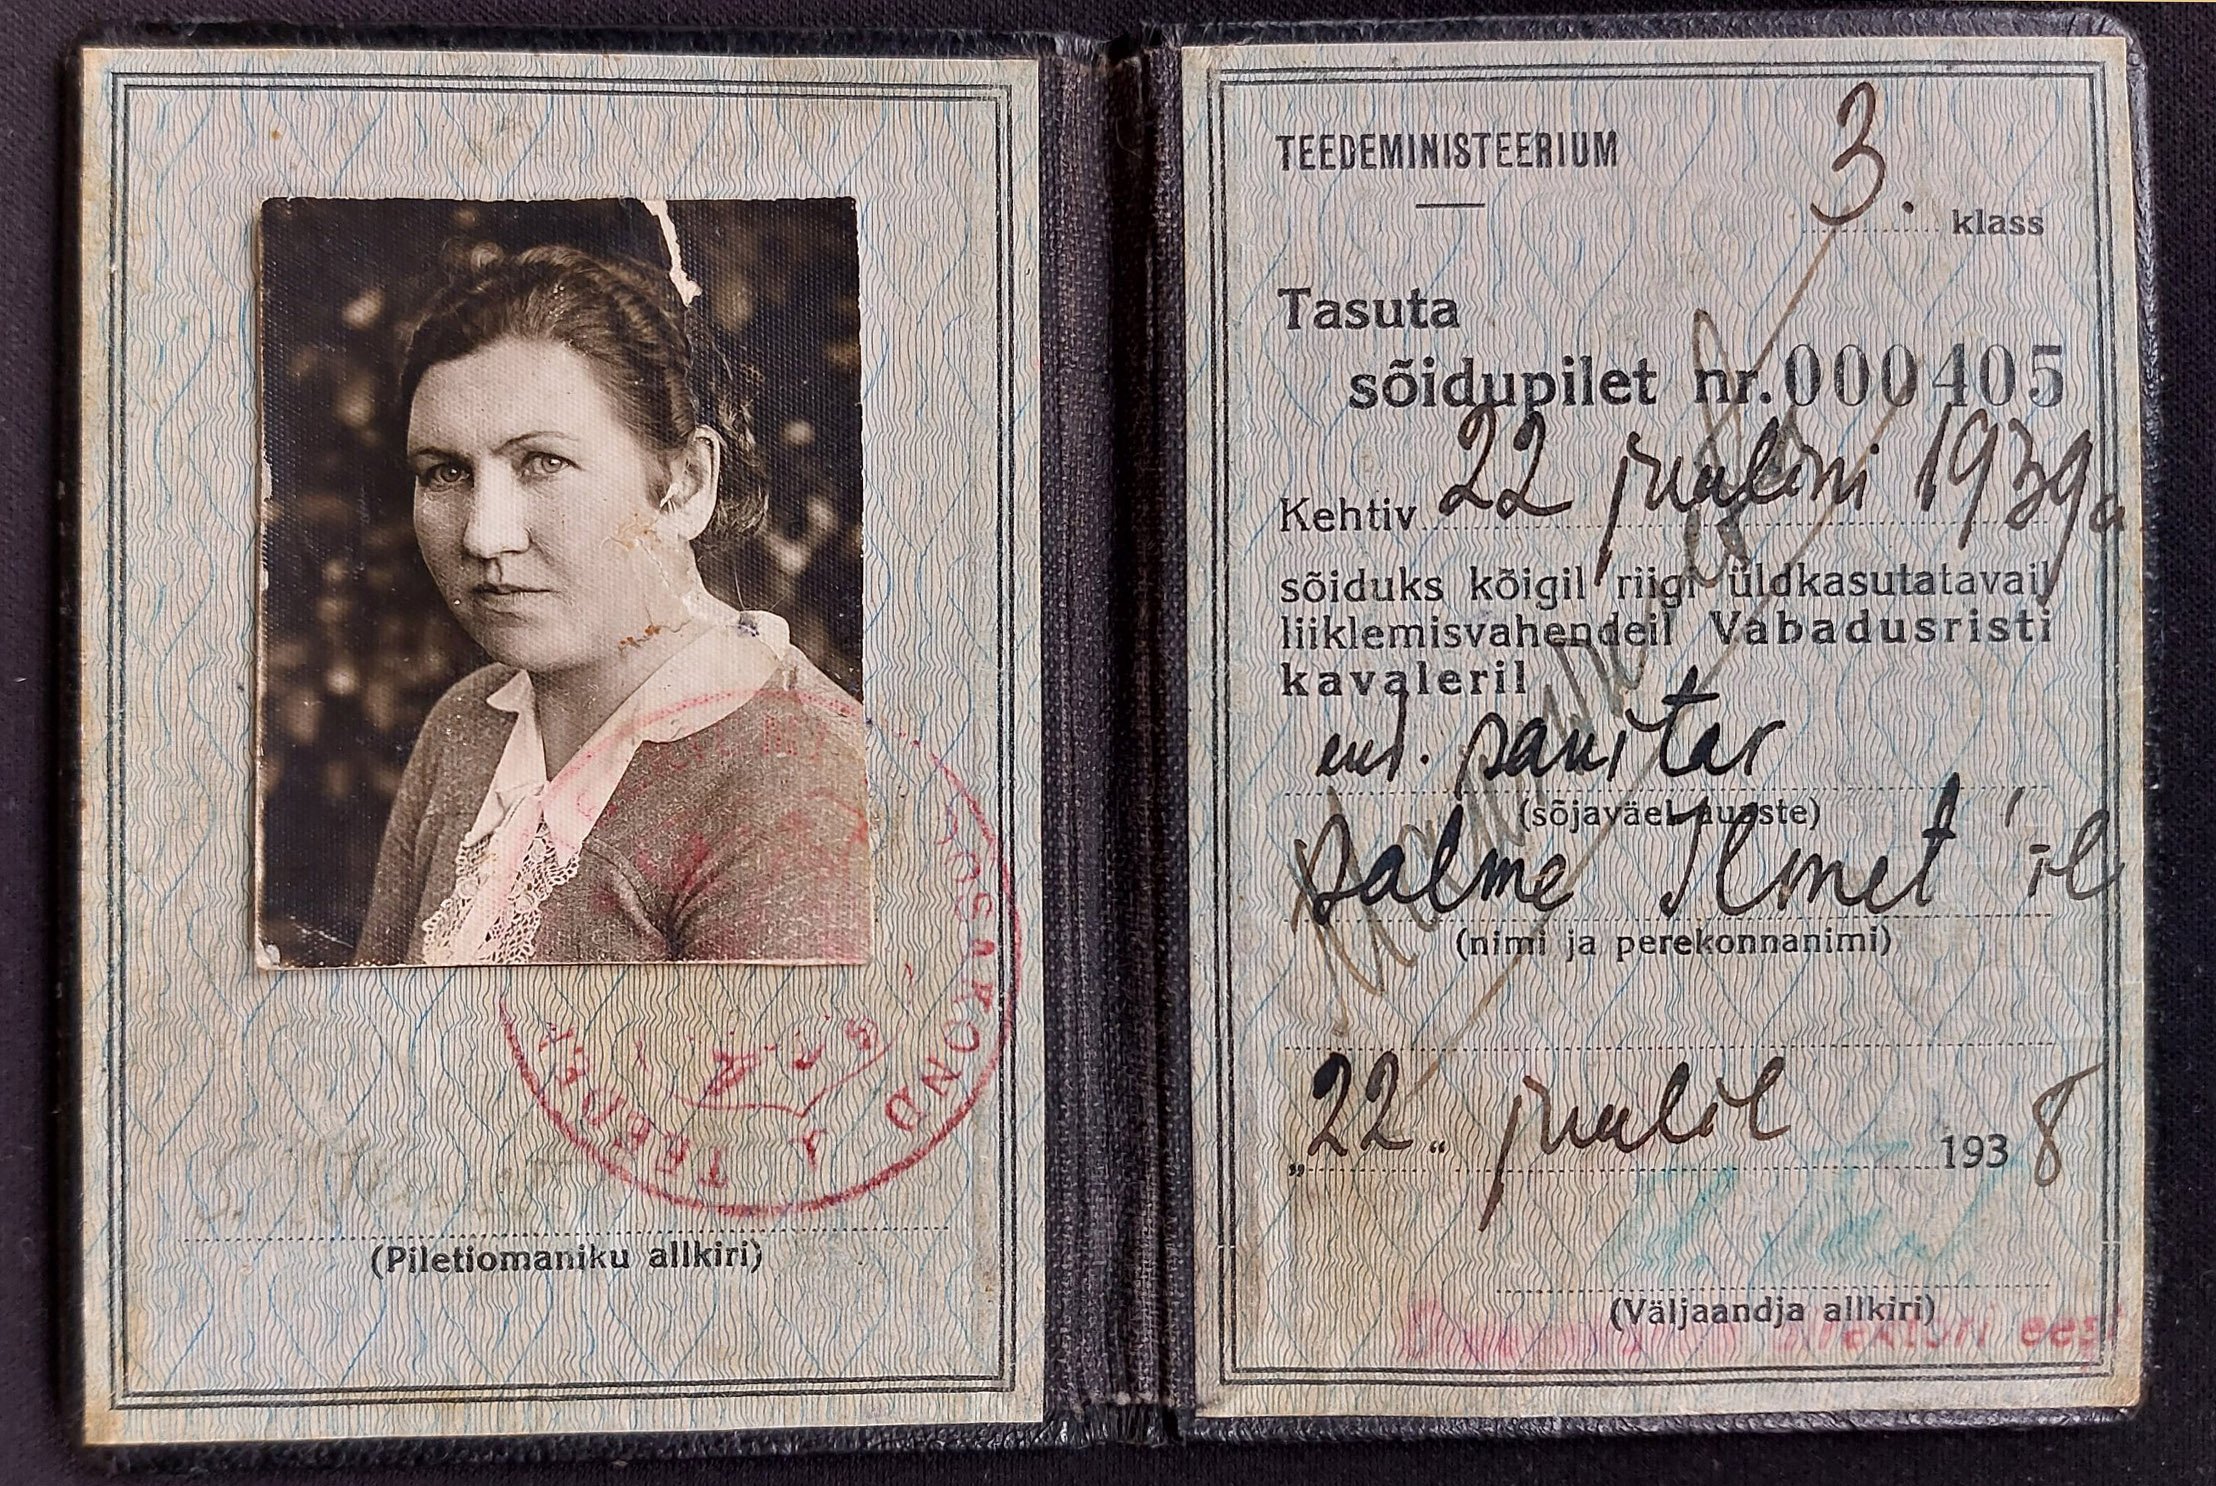 (Piletiomaniku allkiri)
OSAKOND
TEEDE
TEEDEMINISTEERIUM
3. klass
Tasuta
sõidupilet nr. 000405
Kehtiv 22 juulini 1939 a
sõiduks kõigil riigi üldkasutatavail
liiklemisvahendeil Vabadusristi
kavaleril
end. sanitar
(sõjaväel. auaste)
Salme Ilmet'il
(nimi ja perekonnanimi)
„22“ juulil 1938
(Väljaandja allkiri)
direktori eest